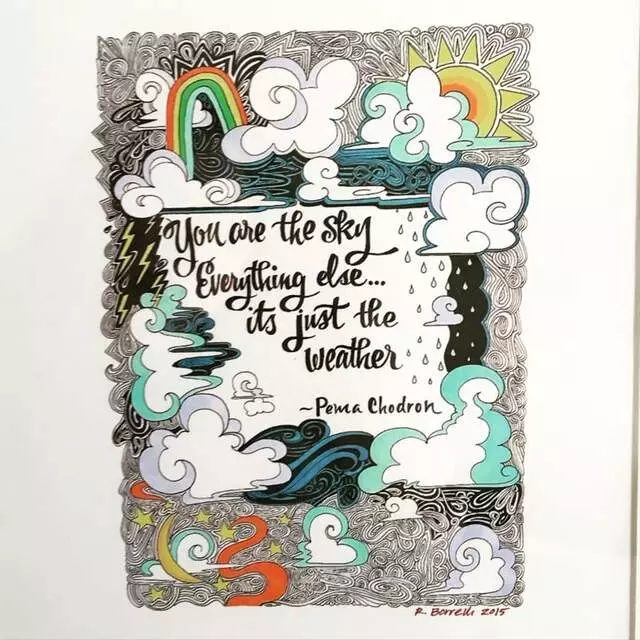 You are the sky
Everything else...
its just the
weather
~Pema Chodron
R. Borrelli 2015